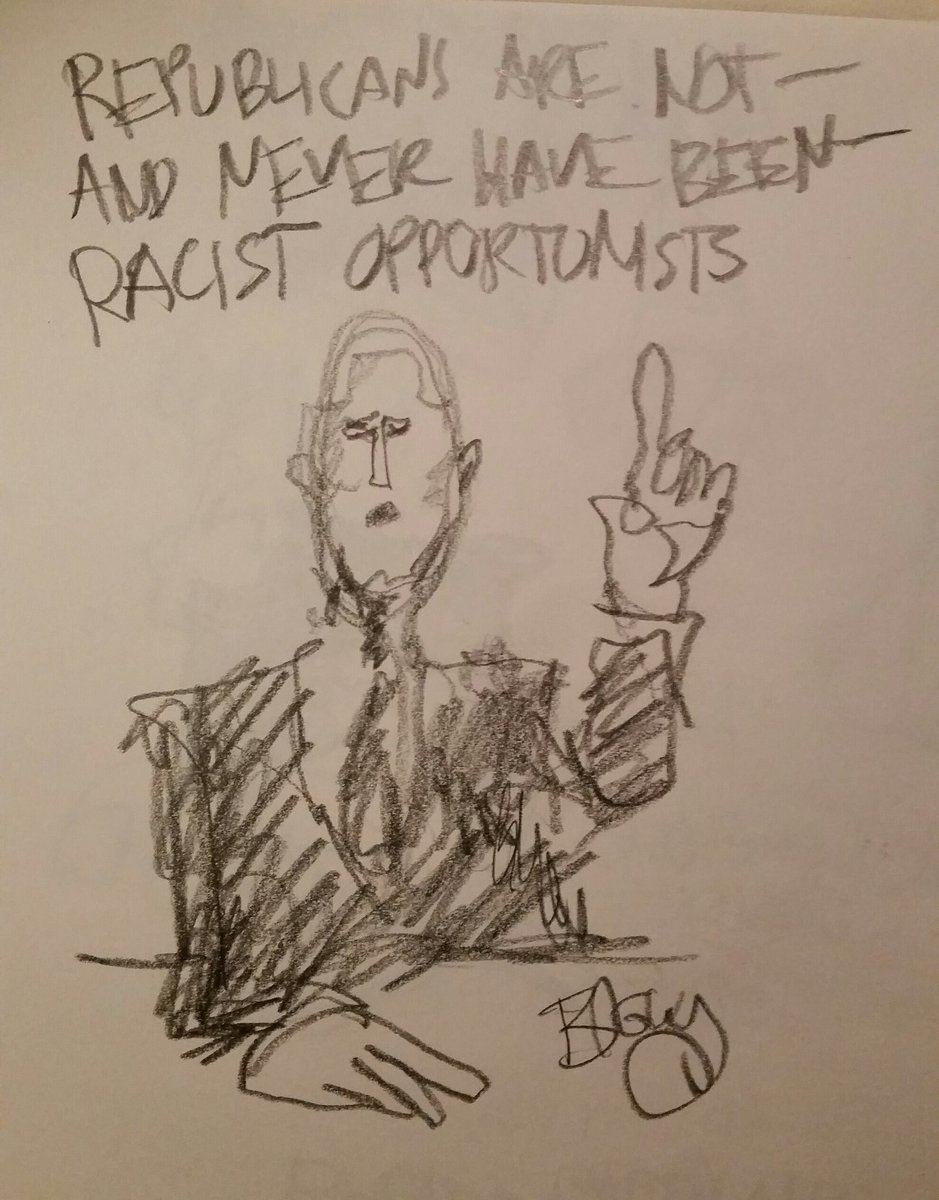 REPUBLICANS ARE NOT—
AND NEVER HAVE BEEN—
RACIST OPPORTUNISTS